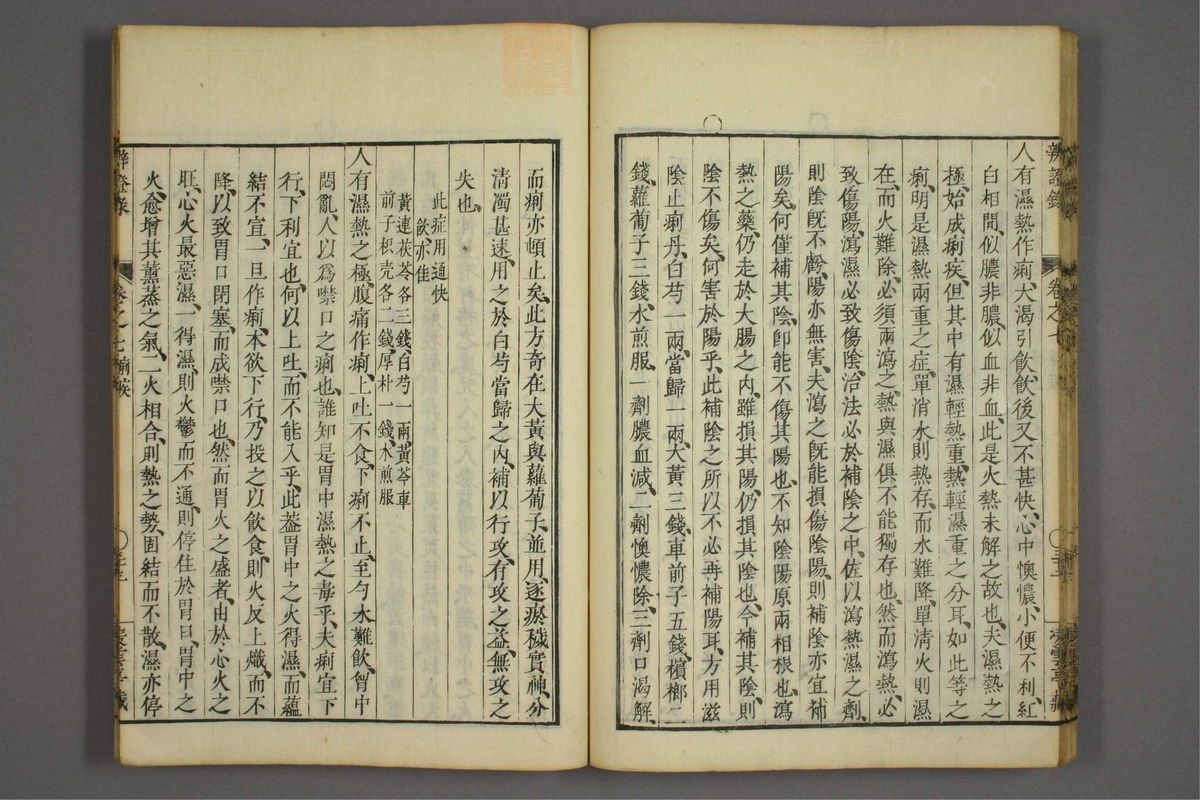 辨證錄 卷之七
人有濕熱作痢大渴引飲飲後又不甚快心中懊憹小便不利紅
白相間似膿非膿似血非血此是火熱未解之故也夫濕熱之
極始成痢疾但其中有濕輕熱重熱輕濕重之分耳如此等之
痢明是濕熱兩重之症單消水則熱存而水難降單清火則濕
在而火難除必須兩瀉之熱與濕俱不能獨存也然而瀉熱必
致傷陽瀉濕必致傷陰治法必於補陰之中佐以瀉熱濕之劑
則陰既不虧陽亦無害夫瀉之既能損傷陰陽則補陰亦宜補
陽矣何僅補其陰卽能不傷其陽也不知陰陽原兩相根也瀉
熱之藥仍走於大腸之內雖損其陽仍損其陰也今補其陰則
陰不傷矣何害於陽乎此補陰之所以不必再補陽耳方用滋
陰止痢丹白芍一兩當歸一兩大黃三錢車前子五錢檳榔二
錢蘿蔔子三錢水煎服一劑膿血減二劑懊憹除三劑口渴解
而痢亦頓止矣此方奇在大黃與蘿蔔子並用逐瘀穢實神分
清濁甚速用之於白芍當歸之內補以行攻有攻之益無攻之
失也
此症用通快
飲亦佳
黃連茯苓各三錢白芍一兩黃芩車
前子枳壳各二錢厚朴一錢水煎服
人有濕熱之極腹痛作痢上吐不食下痢不止至勺水難飲胷中
悶亂人以爲噤口之痢也誰知是胃中濕熱之毒乎夫痢宜下
行下利宜也何以上吐而不能入乎此葢胃中之火得濕而蘊
結不宣一旦作痢本欲下行乃投之以飲食則火反上熾而不
降以致胃口閉塞而成噤口也然而胃火之盛者由於心火之
旺心火最惡濕一得濕則火鬱而不通則停住於胃口胃中之
火愈增其薰蒸之氣二火相合則熱之勢固結而不散濕亦停
卷之七 痢疾